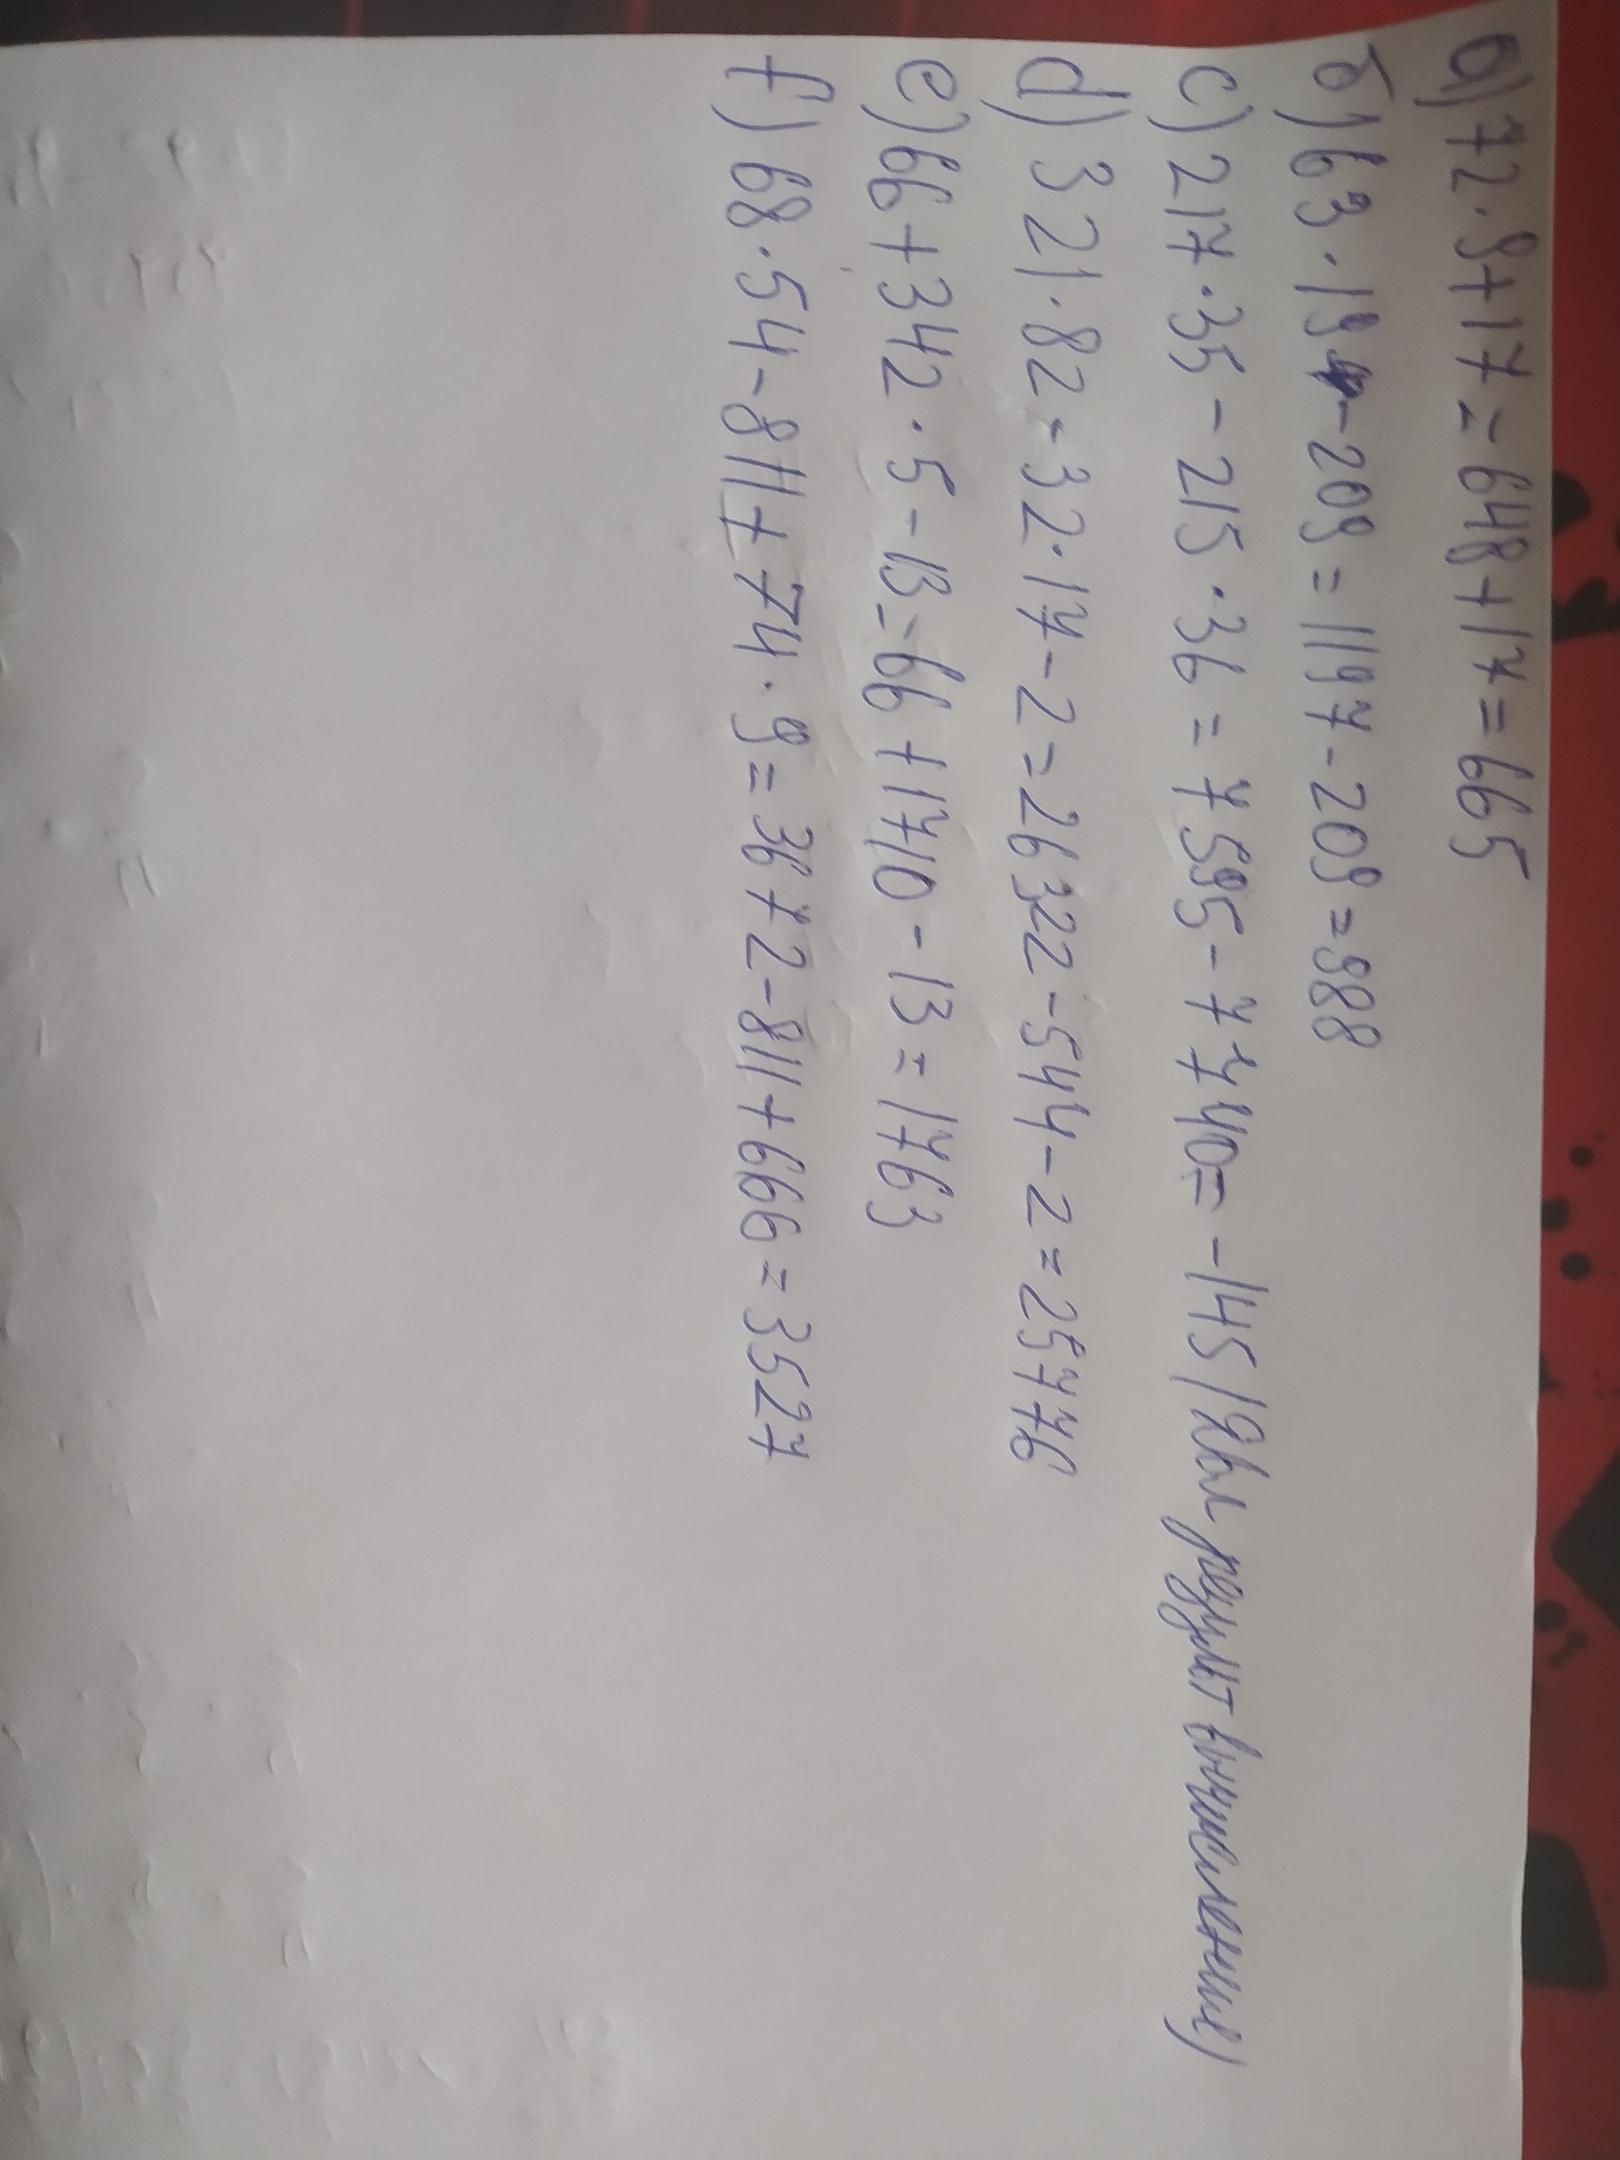 а) 72·9+17=648+17=665
б) 63·19-209=1197-209=988
c) 217·35-215·36=7595-7740=-145 (Явл результ вычисление)
d) 321·82-32·17-2=26322-544-2=25776
e) 66+342·5-13=66+1710-13=1763
f) 68·54-811+74·9=3672-811+666=3527